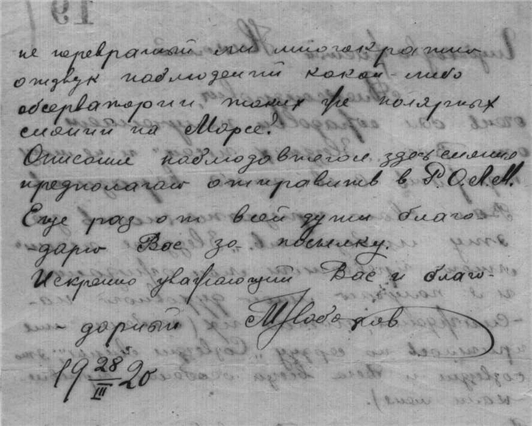 не превратный ли многократно
отзвук наблюдений какой-либо
обсерватории таких же полярных
сияний на Марсе?
Описание наблюдавшегося здесь сияния
предполагаю отправить в Р.О.Л.М.
Еще раз от всей души благо-
дарю Вас за посылку.
Искренно уважающий Вас и благо-
дарный
19 28/III 26